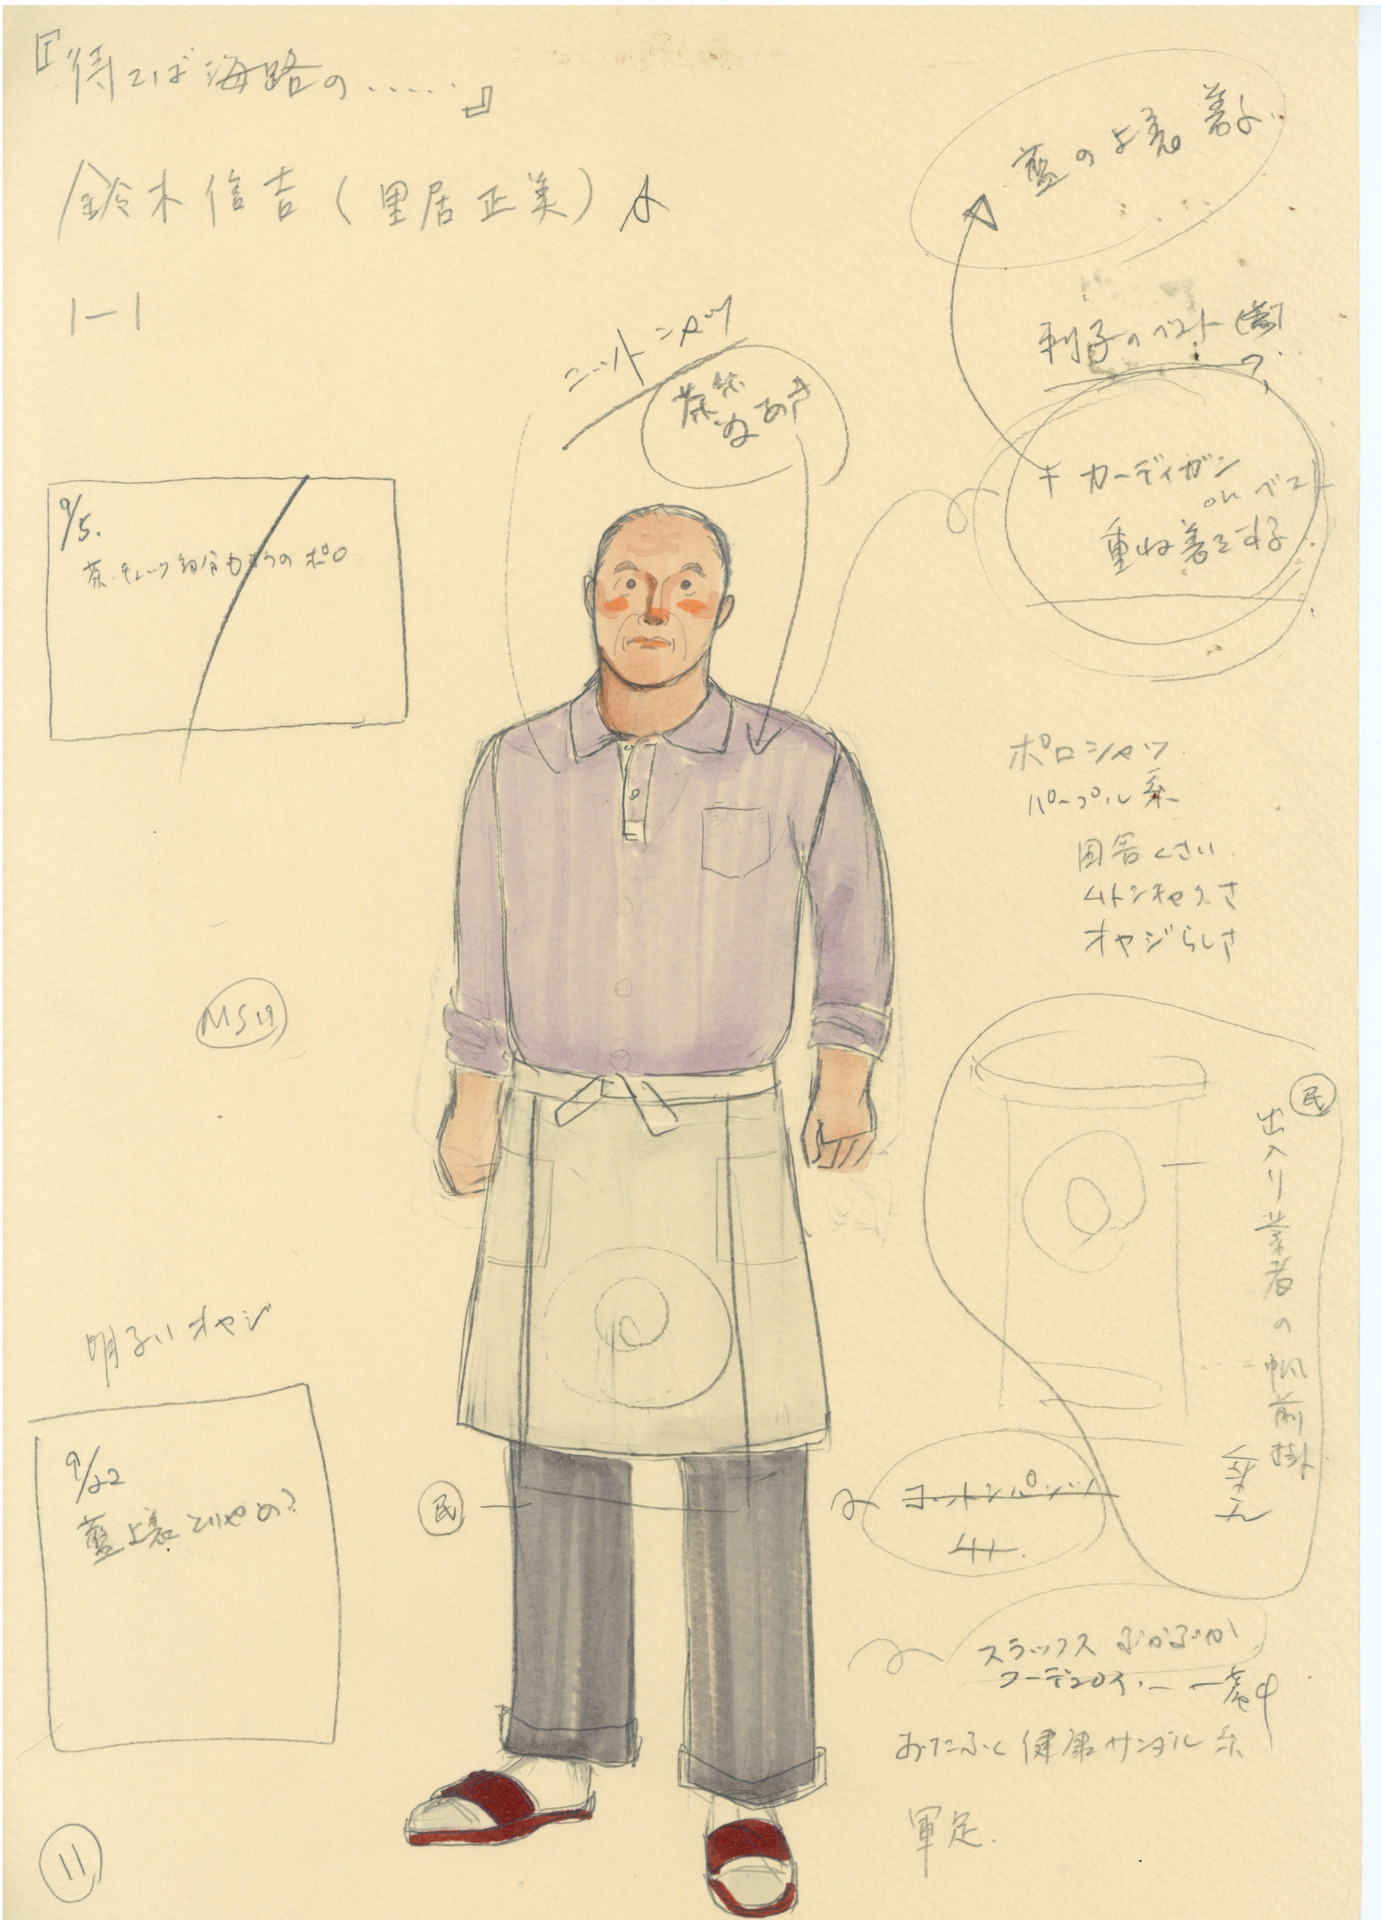 『待てば海路の……』
鈴木信吉(里居正美)
1-1
藍の上着 着る
利子のベスト
ニットシャツ
茶
カーディガン
on ベスト
重ね着をする
9/5.
茶チェック
のポロ
ポロシャツ
パープル系
田舎くさい
ムトンチャクさ
オヤジらしさ
MS
民
出入り業者の帆前掛
明るいオヤジ
9/22
藍上着とりやめ?
民
コットンパンツ
スラックス ぶかぶか
コーデュロイ
おたふく 健康サンダル 系
軍足.
11